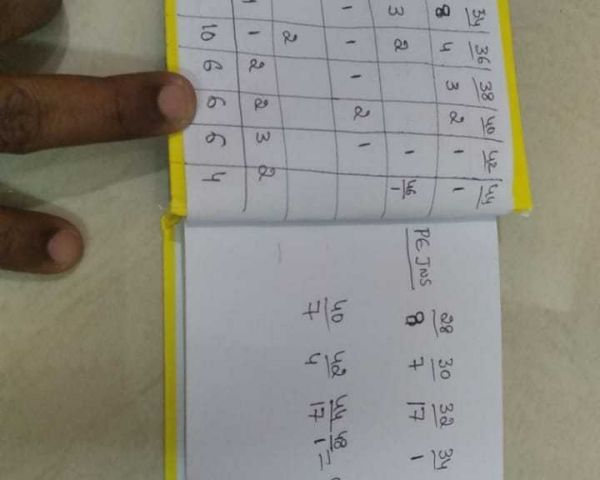 34 36 38 40 42 44
8 4 3 2 1 1
3 2 1 46
1
1 1 1 2 1
2
1 2 2 3 2
10 6 6 6 4
PE JNS
28 30 32 34
8 7 17 1
40 42 44 48
7 4 17 1 =